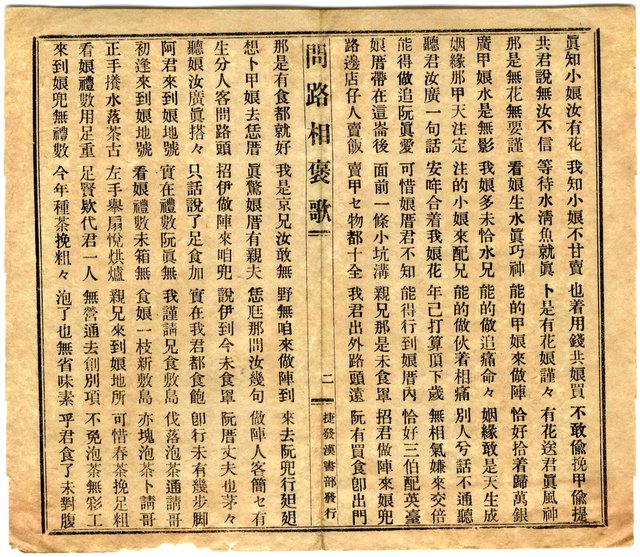 眞知小娘汝有花 我知小娘不甘賣 也着用錢共娘買 不敢偸挽甲偸提
共君說無汝不信 等待水淸魚就眞 卜是有花娘謹々 有花送君眞風神
那是無花無要謹 看娘生水眞巧神 能的甲娘來做陣 恰好拾着歸萬銀
廣甲娘水是無影 我娘多未恰水兄 能的做追痛命々 姻緣敢是天生成
姻緣那甲天注定 注的小娘來配兄 能的做伙着相痛 別人兮話不通聽
聽君汝廣一句話 安咩合着我娘花 年己打算頂下歲 無相氣嫌來交倍
能得做追阮眞愛 可惜娘厝君不知 能得行到娘厝內 恰好三伯配英臺
娘厝帶在這崙後 面前一條小坑溝 親兄那是未食罩 招君做陣來娘兜
路邊店仔人賣飯 賣甲セ物都十全 我君出外路頭遠 阮有買食卽出門
問路相褒歌 二 捷發漢書部發行
那是有食都就好 我是京兄汝敢無 野無咱來做陣到 來去阮兜行廻廻
想卜甲娘去恁厝 眞驚娘厝有親夫 恁厝那問汝幾句 做陣人客簡セ有
生分人客問路頭 招伊做陣來咱兜 說伊到今未食罩 阮厝丈夫也茅々
聽娘汝廣眞搭々 只話說了足食加 實在我君都食飽 卽行未有幾步脚
阿君來到娘地號 實在禮數阮眞無 我謹請兄食敷島 伐落泡茶通請哥
初逢來到娘地號 看娘禮數未箱無 食娘一枝新敷島 亦塊泡茶卜請哥
正手捀水落茶古 左手舉扇悅烘爐 親兄來到娘地所 可惜春茶挽足粗
看娘禮數用足重 足賢欵代君一人 無營通去創別項 不免泡茶無彩工
來到娘兜無禮數 今年種茶挽粗々 泡了也無省味素 乎君食了未對腹